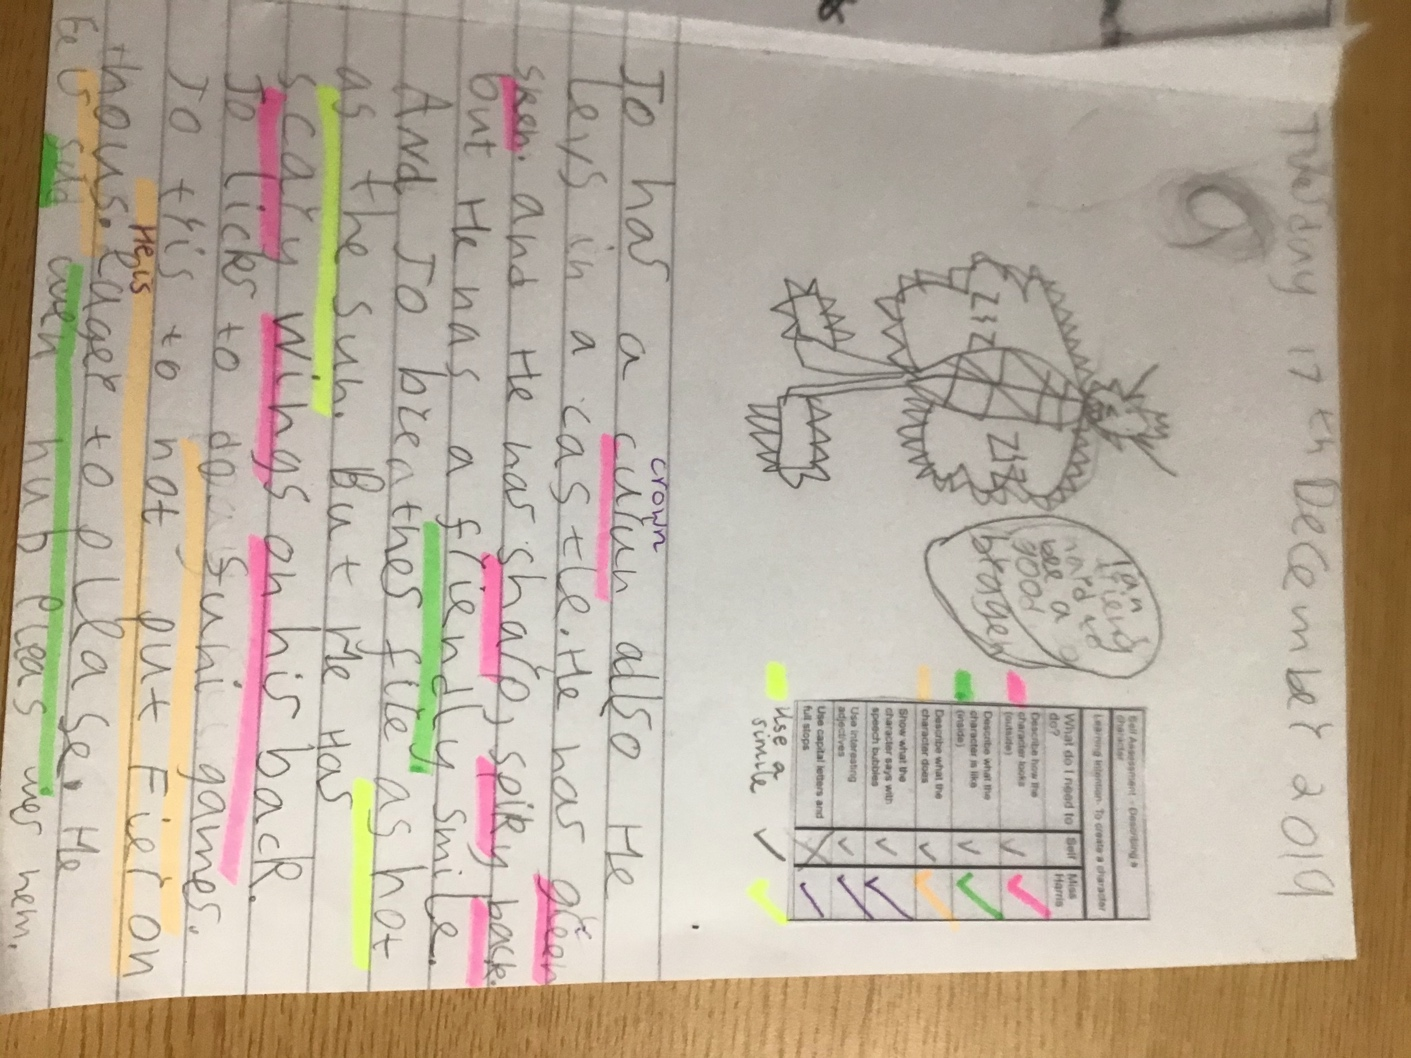 Tuesday 17th December 2019
I an
friend
bee a
good
bragen
Self Assessment - Describing a
character
Learning Intention: To create a character
What do I need to
do?
Self
Miss
Harris
Describe how the
character looks
(outside)
Describe what the
character is like
(inside)
Describe what the
character does
Show what the
character says with
speech bubbles
Use interesting
adjectives
Use capital letters and
full stops
use a
simile
crown
Jo has a allso He
leys in a castle. He has green
sken. and He has sharp, spiky back.
but He has a fiendly smile.
And Jo breathes fire as hot
as the sun. But He Has
scary wings on his back.
Jo licks to do funi games.
Jo tris to not put Fier on
He is
thous. eager to plase. He
Fel's when hup pleas